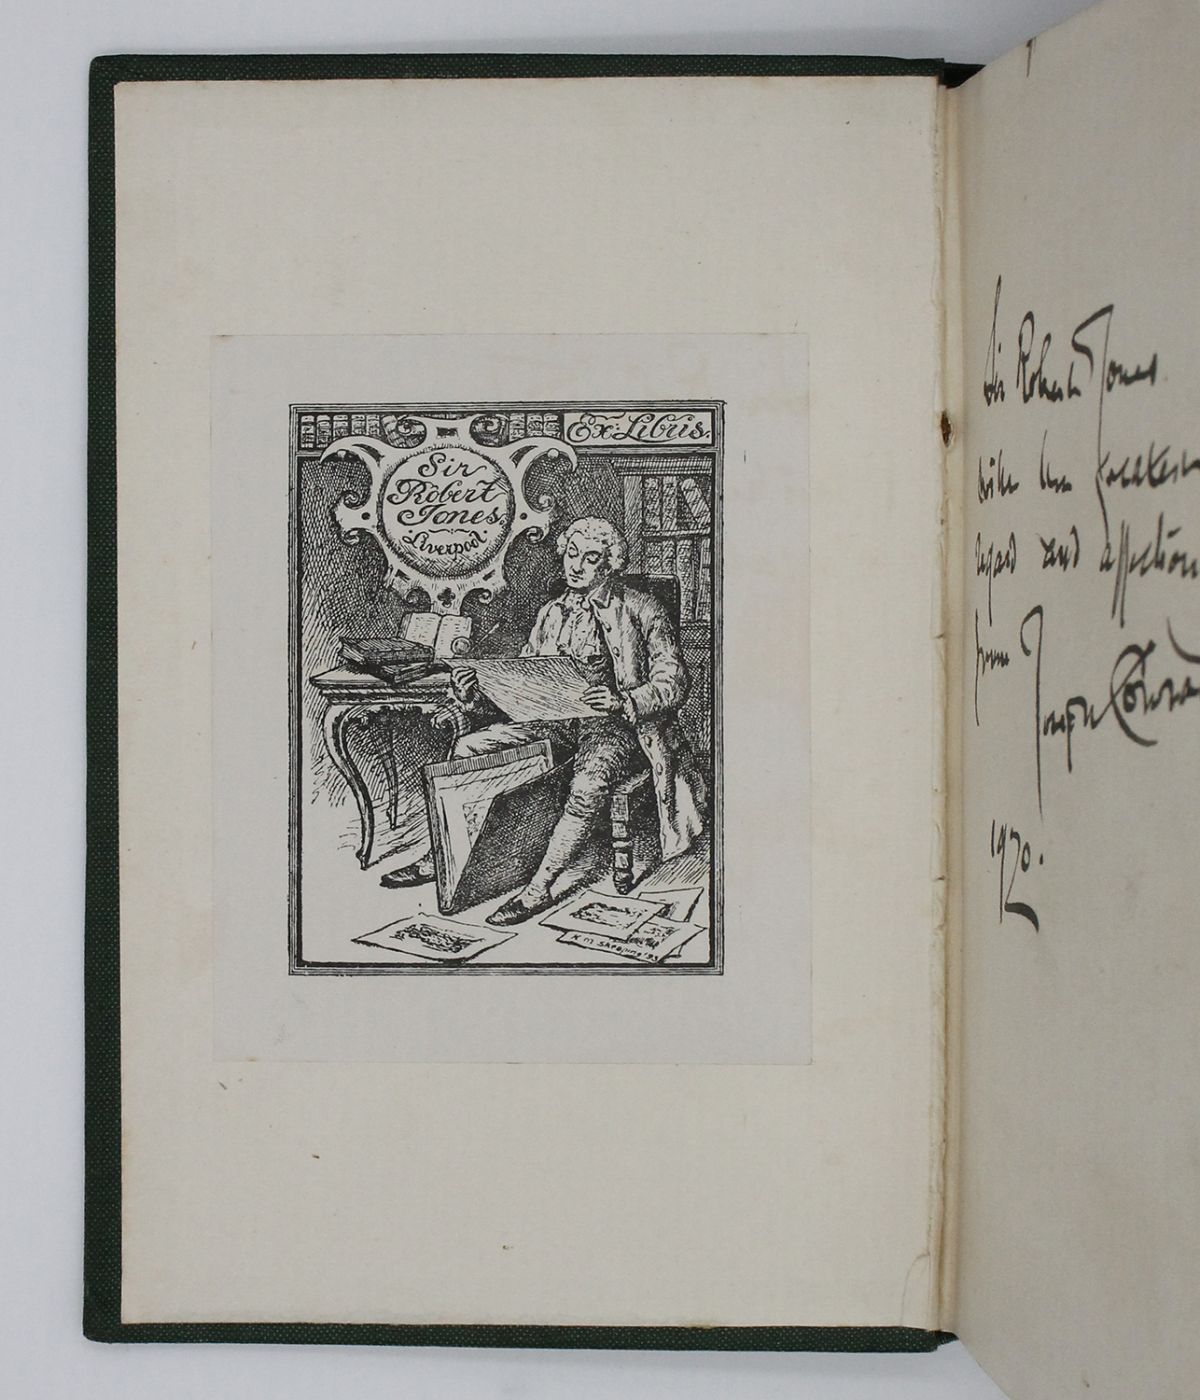 Ex·Libris.
Sir
Robert
Jones.
Liverpool
K M Skeaping '93
Sir Robert Jones
with the greatest
regard and affection
from
Joseph Conrad
1920.